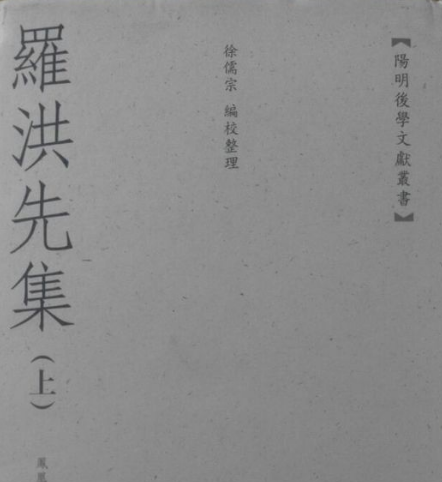 【陽明後學文獻叢書】
徐儒宗 編校整理
羅洪先集（上）
鳳凰